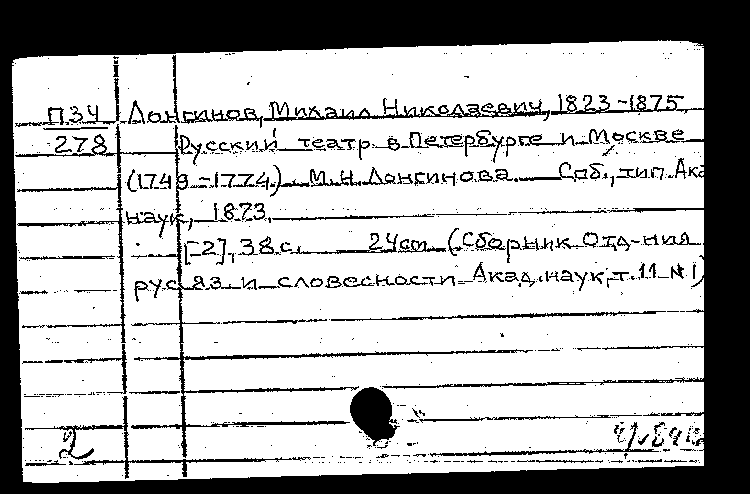 П34 Лонгинов, Михаил Николаевич, 1823-1875
278 Русский театр в Петербурге и Москве
(1749-1774) М.Н.Лонгинова Спб., тип. Ака
наук, 1873.
[2], 38 с. 24cm (Сборник Отд-ния
рус яз и словесности Акад. наук, т. 11 №1)
2